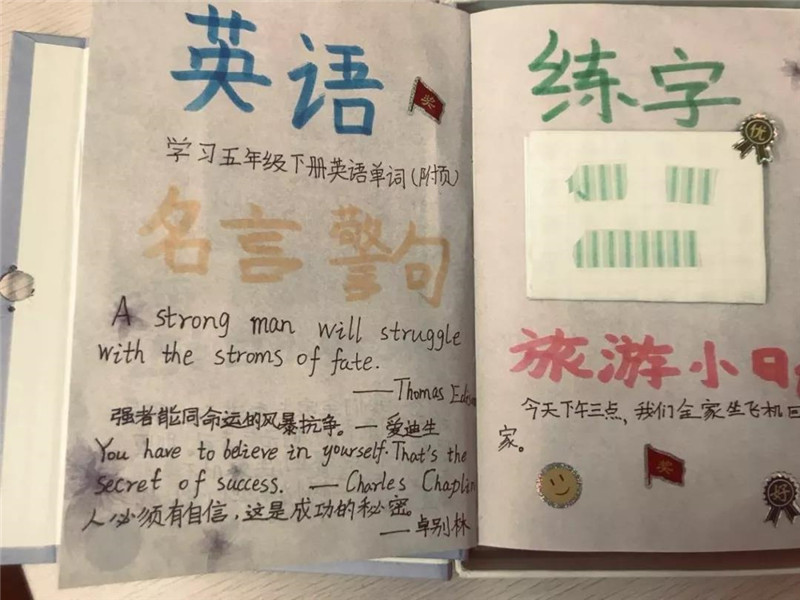 英语
奖
学习五年级下册英语单词(附页)
名言警句
A strong man will struggle
with the stroms of fate.
——Thomas
强者能同命运的风暴抗争。—爱迪生
You have to believe in yourself. That's the
secret of success. —Charles Chaplin
人必须有自信,这是成功的秘密。
—卓别林
练字
优
旅游小日
今天下午三点,我们全家坐飞机回
家。
奖
好